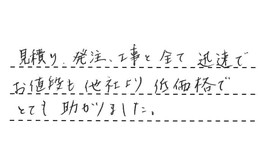 見積り、発注、工事と全て迅速で
お値段も他社より低価格で
とても助かりました。